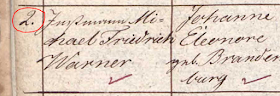 2. Zustmann Mi-
chael Friedrich
Warner
Johanne
Eleonore
geb. Branden
burg